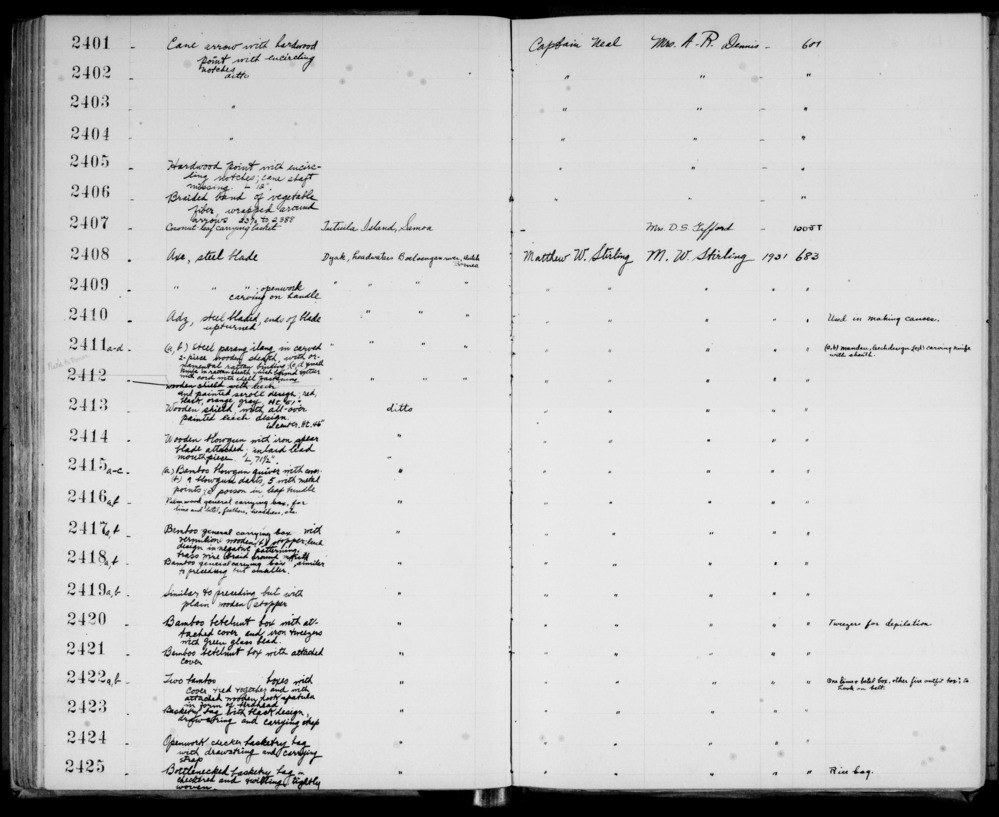 2401 - Cane arrow with hardwood Captain Neal Mrs. A. R. Dennis - 601
point with encircling
notches
2402 - ditto " " - "
2403 - " " " - "
2404 - " " " - "
2405 - Hardwood point with encirc- " " - "
ling notches; cane shaft
missing. L 12"
2406 - Braided band of vegetable " " - "
fiber, wrapped around
arrows to 2388
2407 - Coconut leaf carrying basket Tutuila Island, Samoa - Mrs. D. S. Gifford -
2408 - Axe, steel blade Dyak, headwaters Boeloengan river, Dutch Borneo Matthew W. Stirling M. W. Stirling 1931 683
2409 - " " " ; openwork " " " " " " " " "
carving on handle
2410 - Adz, steel bladed, ends of blade " " " " " " " " Used in making canoes.
upturned
2411 a-d - (a, b) Steel parang ilang in carved " " " " " " " " (a,b) mandau, leech design (c,d) carving knife
2-piece wooden sheath, with or- with sheath.
namental rattan binding (c, d) small
knife in rattan sheath
with cord with shell fastening
2412 - wooden shield with leech " " " " " " " "
and painted scroll design, red,
black, orange, gray
2413 - Wooden shield, with all-over ditto " " " "
painted leech design.
2414 - Wooden blowgun with iron spear " " " " "
blade attached; inlaid lead
mouthpiece. L, 71½".
2415 a-c - (a) Bamboo blowgun quiver with cover " " " " "
(b) 9 blowgun darts, 5 with metal
points; c poison in leaf bundle
2416 a,b - Palmwood general carrying box, for " " " " "
lime and betel, feathers, headhair, etc.
2417 a,b - Bamboo general carrying box with " " " " "
vermilion wooden stopper; leech
design in negative patterning,
brass wire braid around mouth
2418 a,b - Bamboo general carrying box, similar " " " " "
to preceding but smaller.
2419 a,b - Similar to preceding but with " " " " "
plain wooden stopper
2420 - Bamboo betelnut box with at- " " " " " Tweezers for depilation
tached cover and iron tweezers
with green glass bead.
2421 - Bamboo betelnut box with attached " " " " "
cover
2422 a,b - Two bamboo boxes with " " " " " One lime & betel box, other fire outfit box; to
cover tied together and with hook on belt.
attached wooden hook spatula
in form of birdhead
2423 - Basketry bag with black design, " " " " "
drawstring and carrying strap
2424 - Openwork checker basketry bag " " " " "
with drawstring and carrying
strap
2425 - Bottlenecked basketry bag - " " " " " Rice bag.
checkered and twilling, tightly
woven.